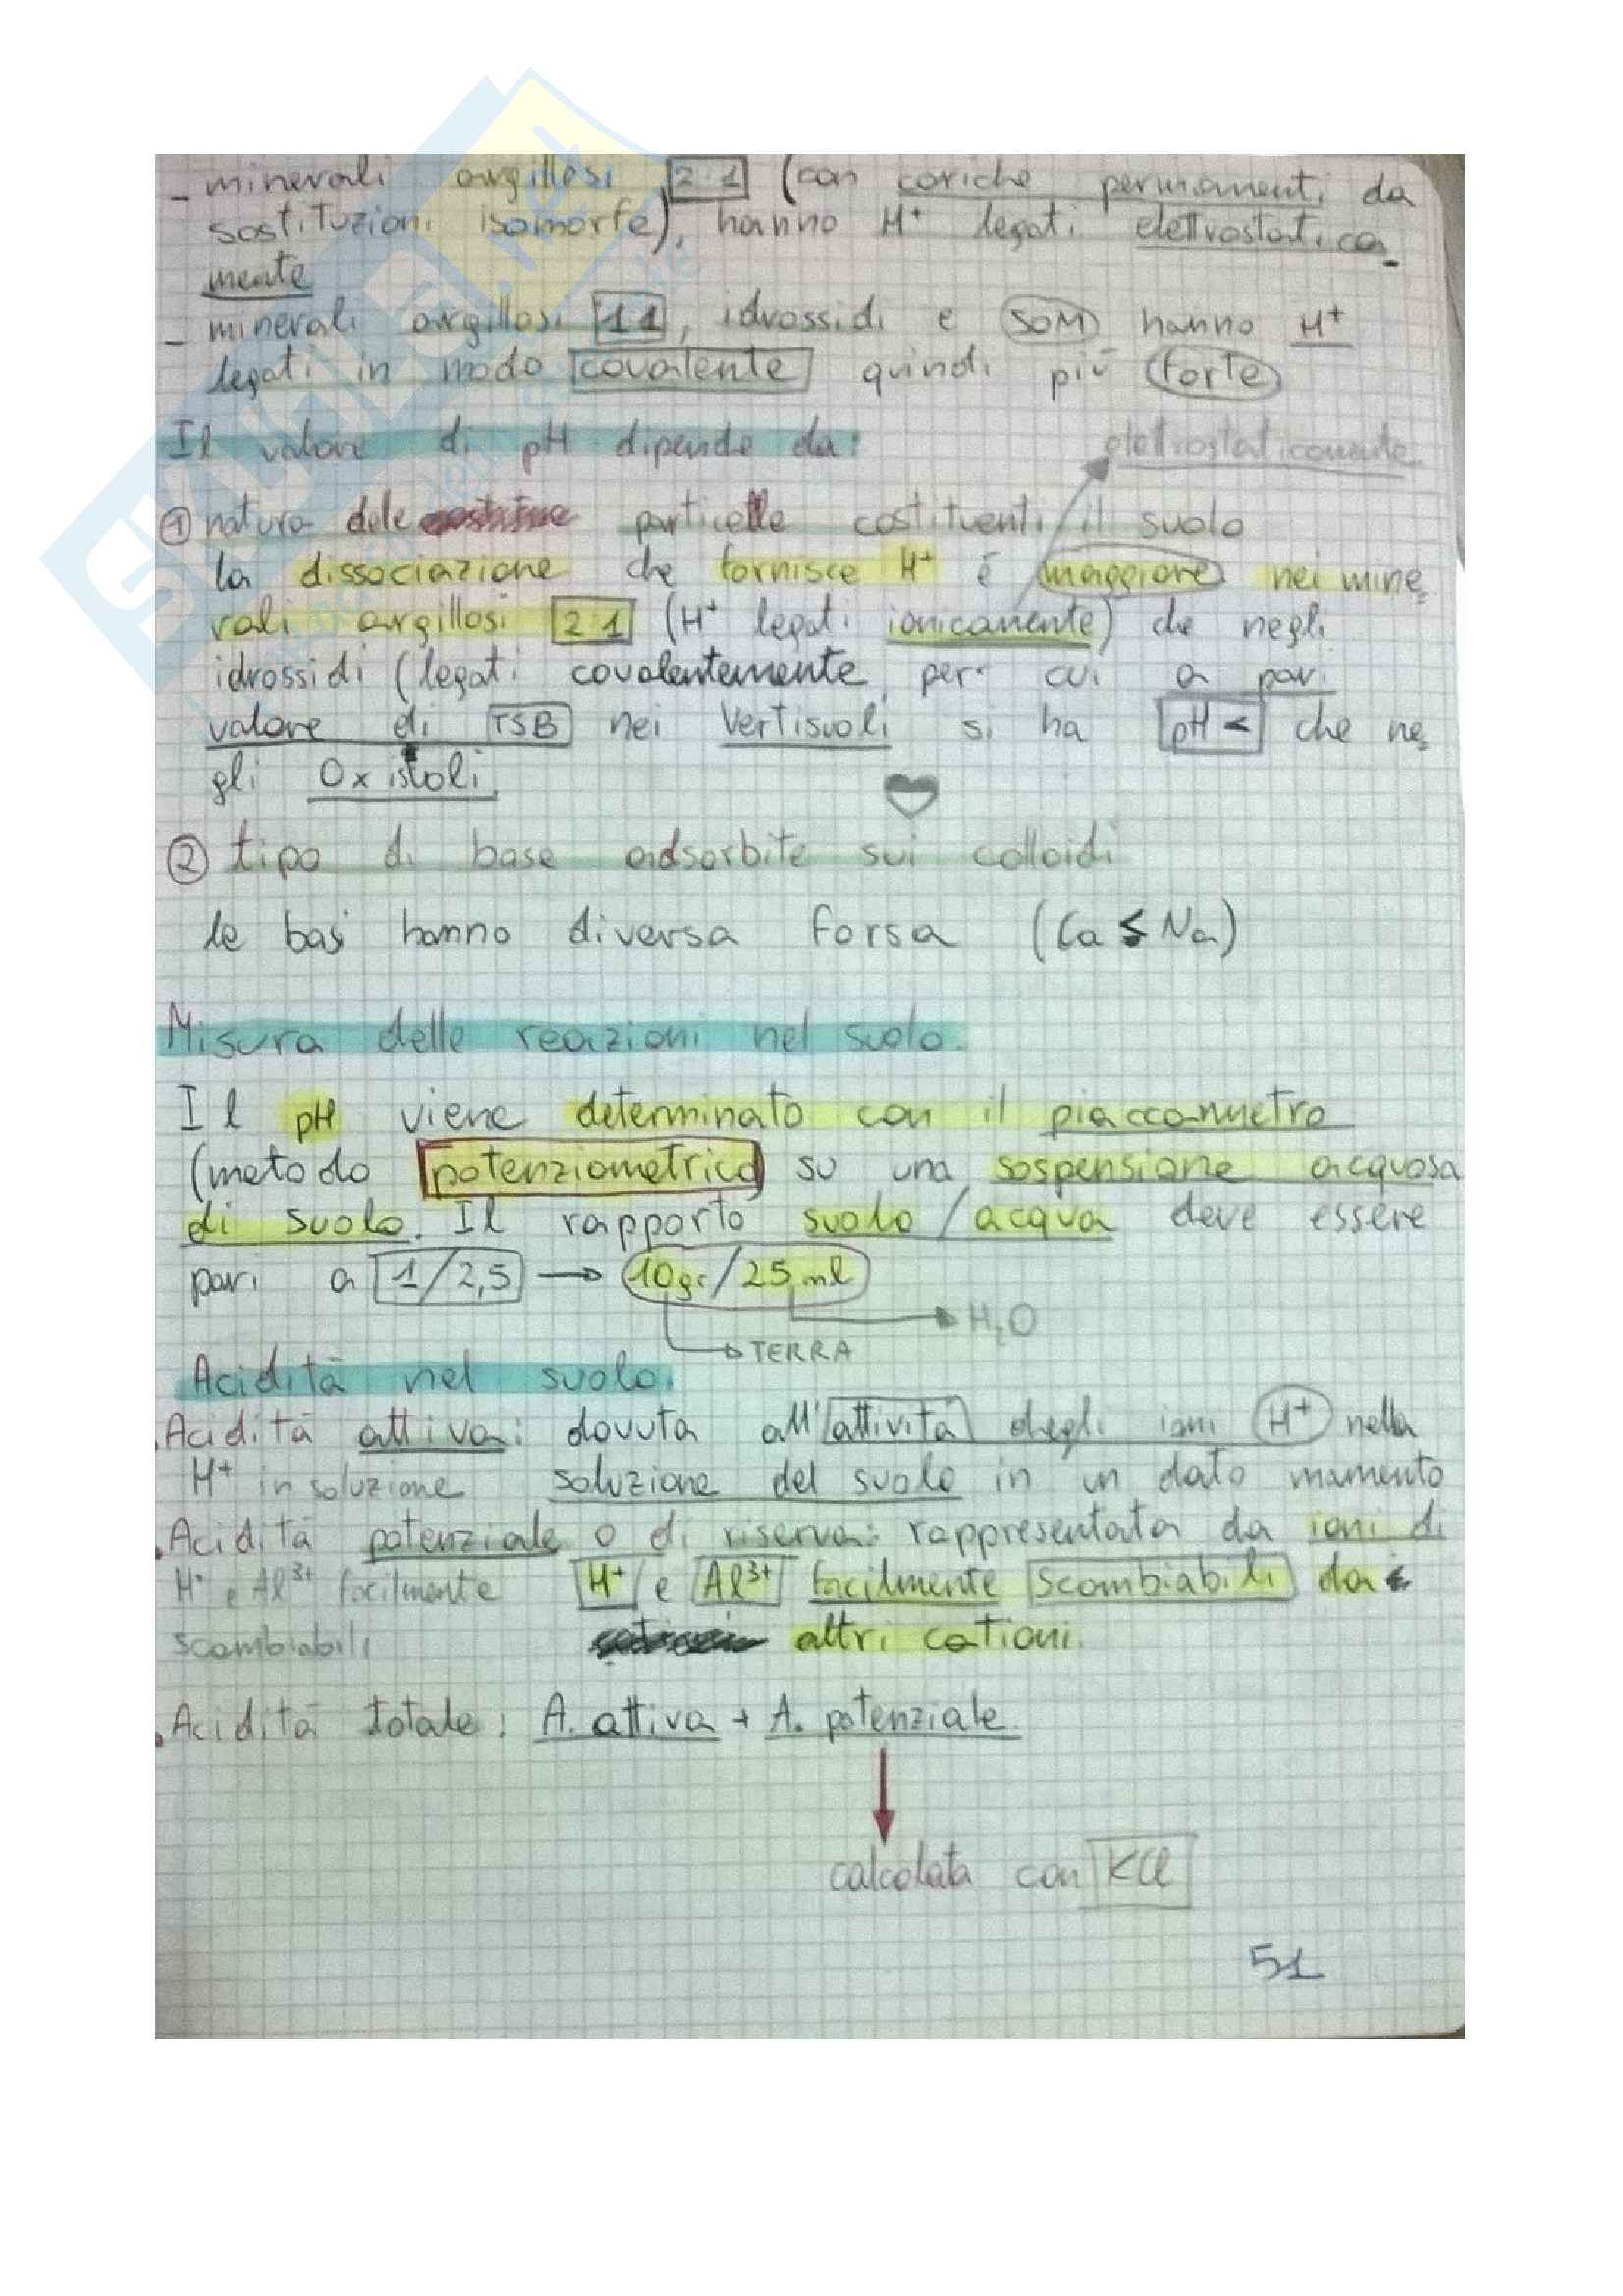 - minerali argillosi 2:1 (con cariche permanenti da
sostituzioni isomorfe), hanno H+ legati elettrostatica
mente
- minerali argillosi 1:1, idrossidi e SOM hanno H+
legati in modo covalente quindi più forte
Il valore di pH dipende da:
elettrostaticamente
① natura delle particelle costituenti il suolo
la dissociazione che fornisce H+ è maggiore nei mine
rali argillosi 2:1 (H+ legati ionicamente) che negli
idrossidi (legati covalentemente, per cui a pari
valore di TSB nei Vertisuoli si ha pH < che ne
gli Oxisoli
② tipo di base adsorbite sui colloidi
le basi hanno diversa forsa (Ca ≤ Na)
Misura delle reazioni nel suolo.
Il pH viene determinato con il piaccametro
(metodo potenziometrico) su una sospensione acquosa
di suolo. Il rapporto suolo/acqua deve essere
pari a 1/2,5 → 10gr/25 ml
H2O
TERRA
Acidità nel suolo.
. Acidità attiva: dovuta all'attività degli ioni H+ nella
H+ in soluzione soluzione del suolo in un dato momento
. Acidità potenziale o di riserva: rappresentata da ioni di
H+ e Al3+ facilmente H+ e Al3+ facilmente scambiabili da
scambiabili altri cationi.
. Acidità totale: A. attiva + A. potenziale
calcolata con KCl
51